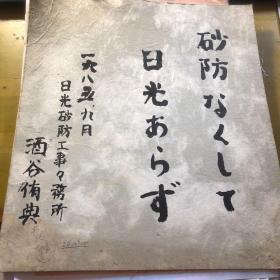 砂防なくして
日光あらず
一九八五、九月
日光砂防工事々務所
酒谷侑典